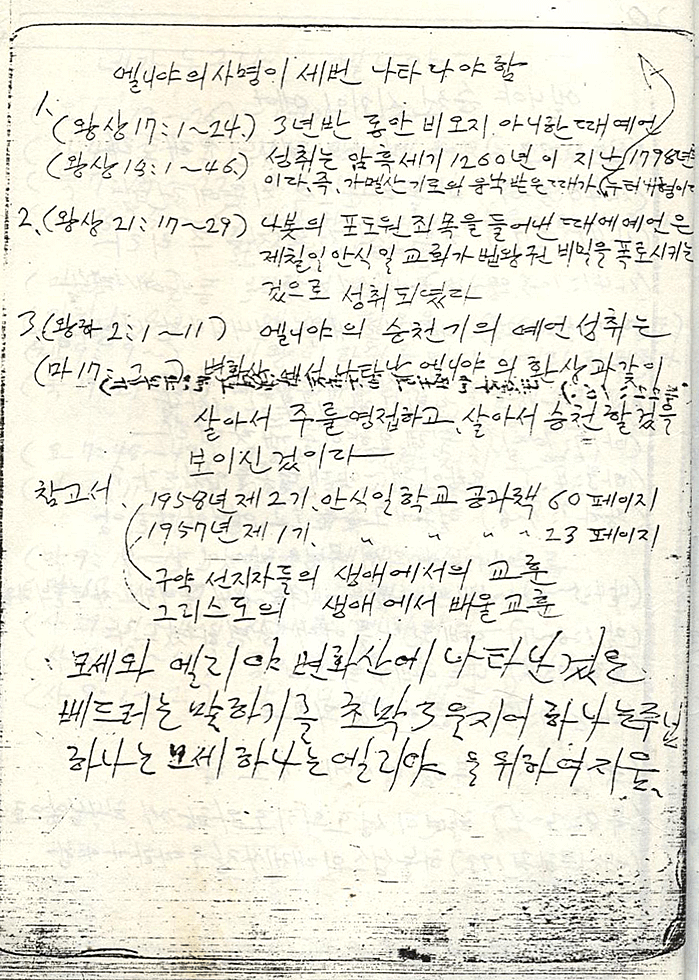 엘니야의사명이 세번 나타나야함
1. (왕상17:1~24.) 3년반 동안 비오지 아니한때예언
(왕상18:1~46.) 성취는 암흑세기 1260년이 지난 1798년
이다. 즉, 가멜산기로의 응답받은때가
2. (왕상 21:17~29) 나봇의 포도원 죄목을들어낸때에예언은
제칠일안식일 교회가 법왕권 비밀을 폭로시키는
것으로 성취되였다
3. (왕하 2:1~11) 엘니야의 승천기의 예언성취는
(마17: 변화산에서 나타난 엘니야의 환상과같이
살아서 주를영접하고, 살아서 승천할것을
보이신것이다—
참고서. 1958년 제2기. 안식일학교 공과책 60페이지
1957년 제1기. 〃 〃 〃 〃 23 페이지
구약 선지자들의 생애에서의 교훈
그리스도의 생애에서배울교훈
모세와 엘리야 변화산에 나타난것은
베드러는말하기를 초막3을지어 하나는주님
하나는 모세 하나는엘리야 을위하여지음.